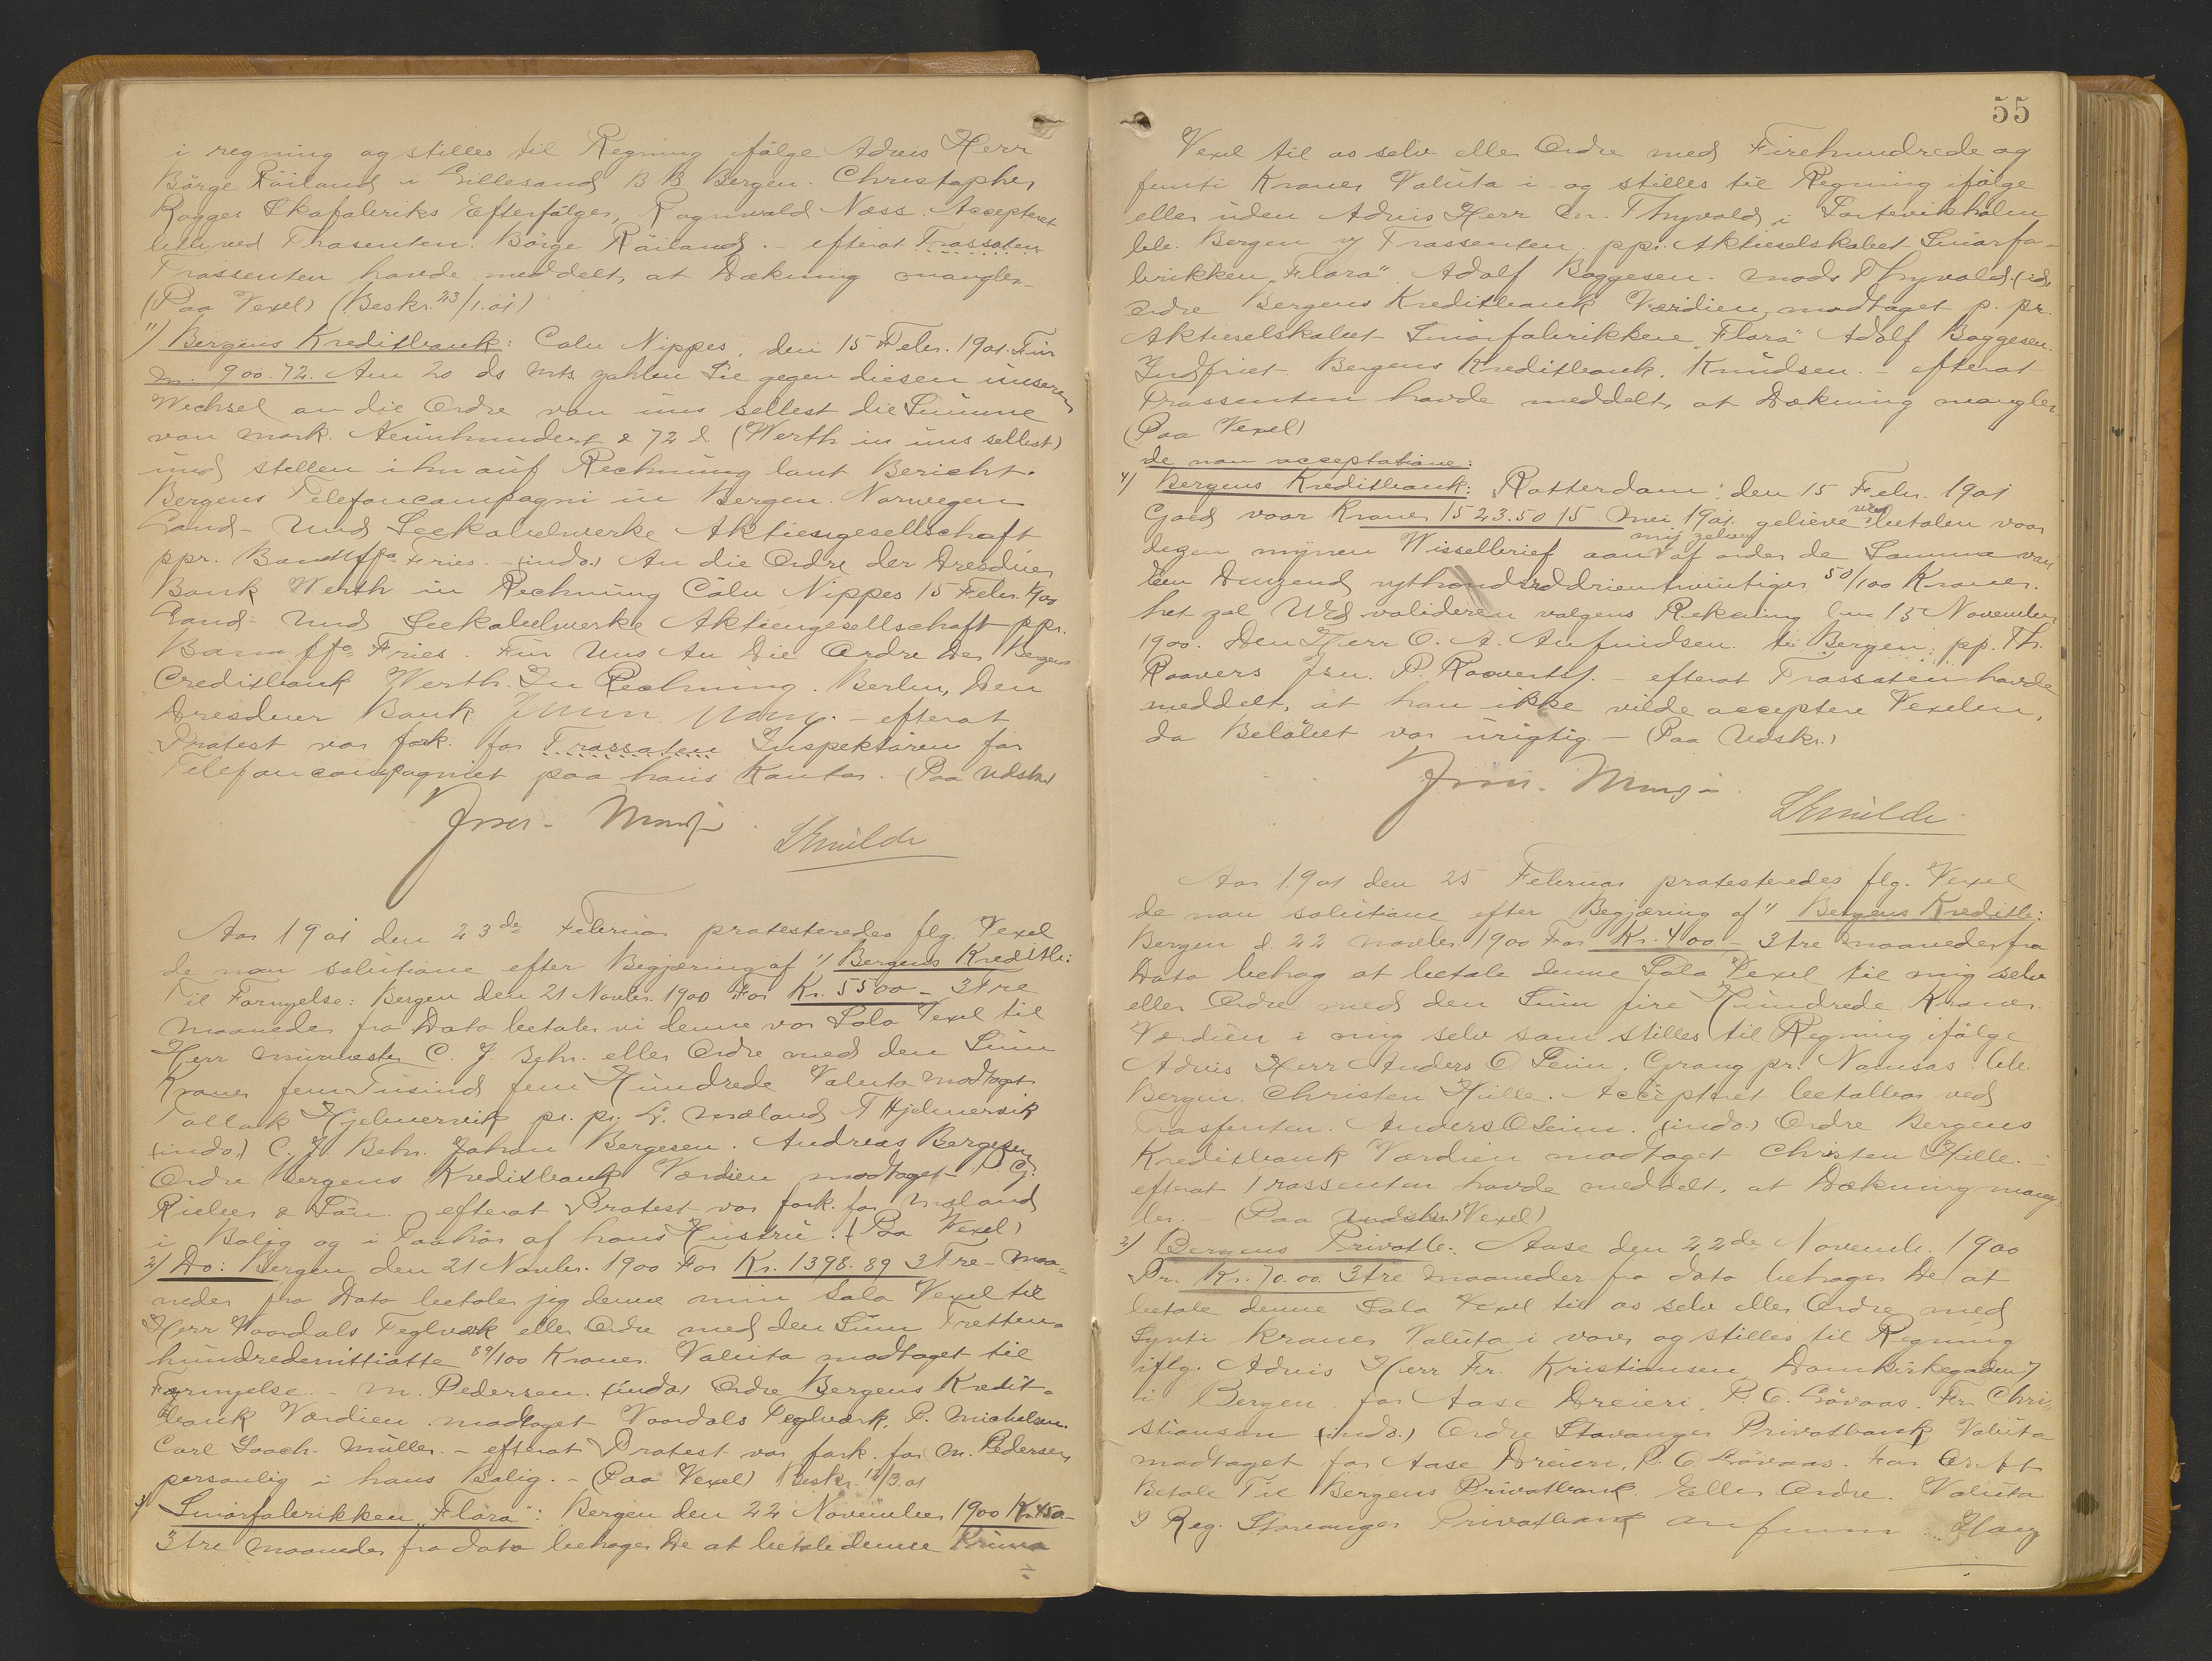 i regning og stilles til Regning ifølge Advis Herr
Börge Räiland i Lillesand B B Bergen. Christopher
Rogges Skofabriks Efterfølger, Ragnvald Næss. Acceptert
bbl. ved Trasenten. Börge Räiland. - efterat Trassaten
Trassenten havde meddelt, at Dækning mangler.
(Paa Vexel) (Beskr. 23/1.01)
11) Bergens Kreditbank: Cöln Nippes, den 15 Febr. 1901. Für
M. 900.72. Am 20 ds Mts. zahlen Sie gegen diesen unseren
Wechsel an die Ordre von uns selbst die Summe
von Mark. Neunhundert & 72 d. (Werth in uns selbst)
und stellen ihn auf Rechnung laut Bericht.
Bergens Telefoncompagni in Bergen. Norwegen
Land- Und Seekabelwerke Aktiengesellschaft
ppr. ppa Fries. - (indo.) An die Ordre der Dresdner
Bank Werth in Rechnung Cöln Nippes 15 Febr. 1901
Land- Und Seekabelwerke Aktiengesellschaft ppr.
ppa Fries. Für Uns An Die Ordre Der Bergens
Creditbank Werth. In Rechnung. Berlin, Den
Dresdner Bank - efterat
Protest var fork. for Trassaten Inspektøren for
Telefoncompagniet paa hans Kontor. (Paa Udskr.)
Aar 1901 den 23de Februar protesteredes flg. Vexel
de non solutione efter Begjæring af 1/ Bergens Kreditb:
Til Fornyelse: Bergen den 21 Novbr. 1900 For Kr. 5500 - 3 Tre
Maaneder fra Dato betaler vi denne vor Sola Vexel til
Herr Murmester C. J. Behr. eller Ordre med den Sum
Kroner fem Tusind fem Hundrede Valuta modtaget
Tollak Hjelmervik pr. pr. L. Mæland T Hjelmervik
(indo.) C. J. Behr. Johan Bergesen. Andreas Bergesen
Ordre Bergens Kreditbank Værdien modtaget P. G.
Rieber & Søn. efterat Protest var fork. for Mæland
i Bolig og i Paahør af hans Hustru. (Paa Vexel)
2) Do: Bergen den 21 Novbr. 1900 For Kr. 1398.89 3 Tre - Maa-
neder fra Dato betaler jeg denne min Sola Vexel til
Herr Vaardals Teglværk eller Ordre med den Sum Tretten-
hundredenittiotte 89/100 Kroner. Valuta modtaget til
Fornyelse. - M. Pedersen. (indo) Ordre Bergens Kredit-
bank Værdien modtaget Vaardals Teglværk, P. Michelsen.
Carl Joach. Müller. - efterat Protest var fork. for M. Pedersen
personlig i hans Bolig. - (Paa Vexel) Beskr. 12/3.01
3) Smørfabrikken "Flora": Bergen den 22 November 1900 Kr. 450 -
3 tre Maaneder fra dato behager De at betale denne Prima
55
Vexel til os selv eller Ordre med Firehundrede og
femti Kroner Valuta i og stilles til Regning ifølge
eller uden Advis Herr M. Thyvold, i Sortevikholm
bbl. Bergen ved Trassenten. ppr. Aktieselskabet Smørfa-
brikken "Flora" Adolf Baggesen. Mads Thyvold. (indo
Ordre Bergens Kreditbank Værdien modtaget p. pr.
Aktieselskabet Smørfabrikken "Flora" Adolf Baggesen.
Indfriet Bergens Kreditbank. Knudsen. - efterat
Trassenten havde meddelt, at Dækning mangler
(Paa Vexel)
de non acceptatione:
4) Bergens Kreditbank: Rotterdam, den 15 Febr. 1901
Goed voor Kroner 1523.50 15 Mei 1901. gelieve U Ed. betalen voor
dezen mijnen Wisselbrief aan mij zelven of order de Somma van
Een Duizend vijfhonderddrieentwintiger 50/100 Kroner.
het zal UEd valideren volgens Rekening van 15 November
1900. Den Heer O. A. Aufindsen. te Bergen. pp. Th.
Roovers Jsn. P. - efterat Trassaten havde
meddelt, at han ikke vilde acceptere Vexelen,
da Beløbet var urigtig. - (Paa Udskr.)
Aar 1901 den 25 Februar protesteredes flg. Vexel
de non solutione efter Begjæring af 1) Bergens Kreditb:
Bergen d. 22 Novbr. 1900 For Kr. 400 - 3 tre Maaneder fra
Dato behag at betale denne Sola Vexel til mig selv
eller Ordre med den Sum fire Hundrede Kroner.
Værdien i mig selv som stilles til Regning ifølge
Advis Herr Anders O Seim. Grong pr. Namsos bbl.
Bergen. Christen Hille. Acceptert betalbar ved
Trasfenten. Anders O Seim. (indo.) Ordre Bergens
Kreditbank Værdien modtaget Christen Hille. -
efterat Trassenten havde meddelt, at Dækning mang-
ler. - (Paa Udskr.) Vexel)
2) Bergens Privatb. Aase den 22de Novemb. 1900
Pr. Kr. 70.00. 3 tre Maaneder fra dato behager De at
betale denne Sola Vexel til os selv eller Ordre med
Sytti kroner Valuta i varer og stilles til Regning
iflg. Advis Herr Fr. Kristiansen Domkirkegaden 7
i Bergen. for Aase Dreieri, P. O. Lövaas. Fr. Chri-
stiansen (indo.) Ordre Stavanger Privatbank Valuta
modtaget for Aase Dreieri, P. O. Lövaas. For Os At
Betale Til Bergens Privatbank Eller Ordre. Valuta
I Reg. Stavanger Privatbank Haug